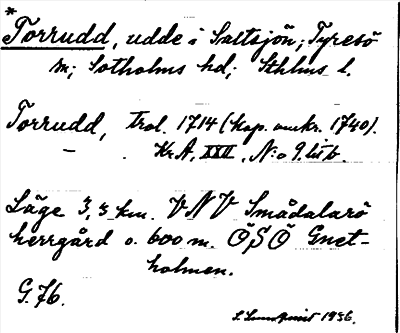 *
Torrudd, udde i Saltsjön; Tyresö
sn; Sotholms hd; Sthlms l.
Torrudd, trol. 1714 (kop. omkr. 1740).
KrA, XXII, N:o 9 litt b.
Läge 3,3 km. VNV Smådalarö
herrgård o. 600 m. ÖSÖ Gnet-
holmen.
G. 76.
S. Lundqvist 1936.